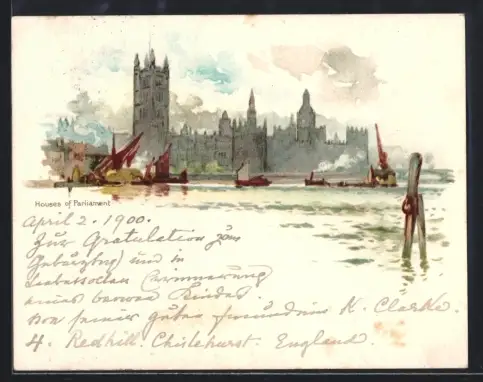 Houses of Parliament
April 2. 1900.
Zur Gratulation zum
Geburtstag und in
Erinnerung
eines Kindes.
von seiner guten freundin K. Clarke.
4. Redhill. Chislehurst. England.